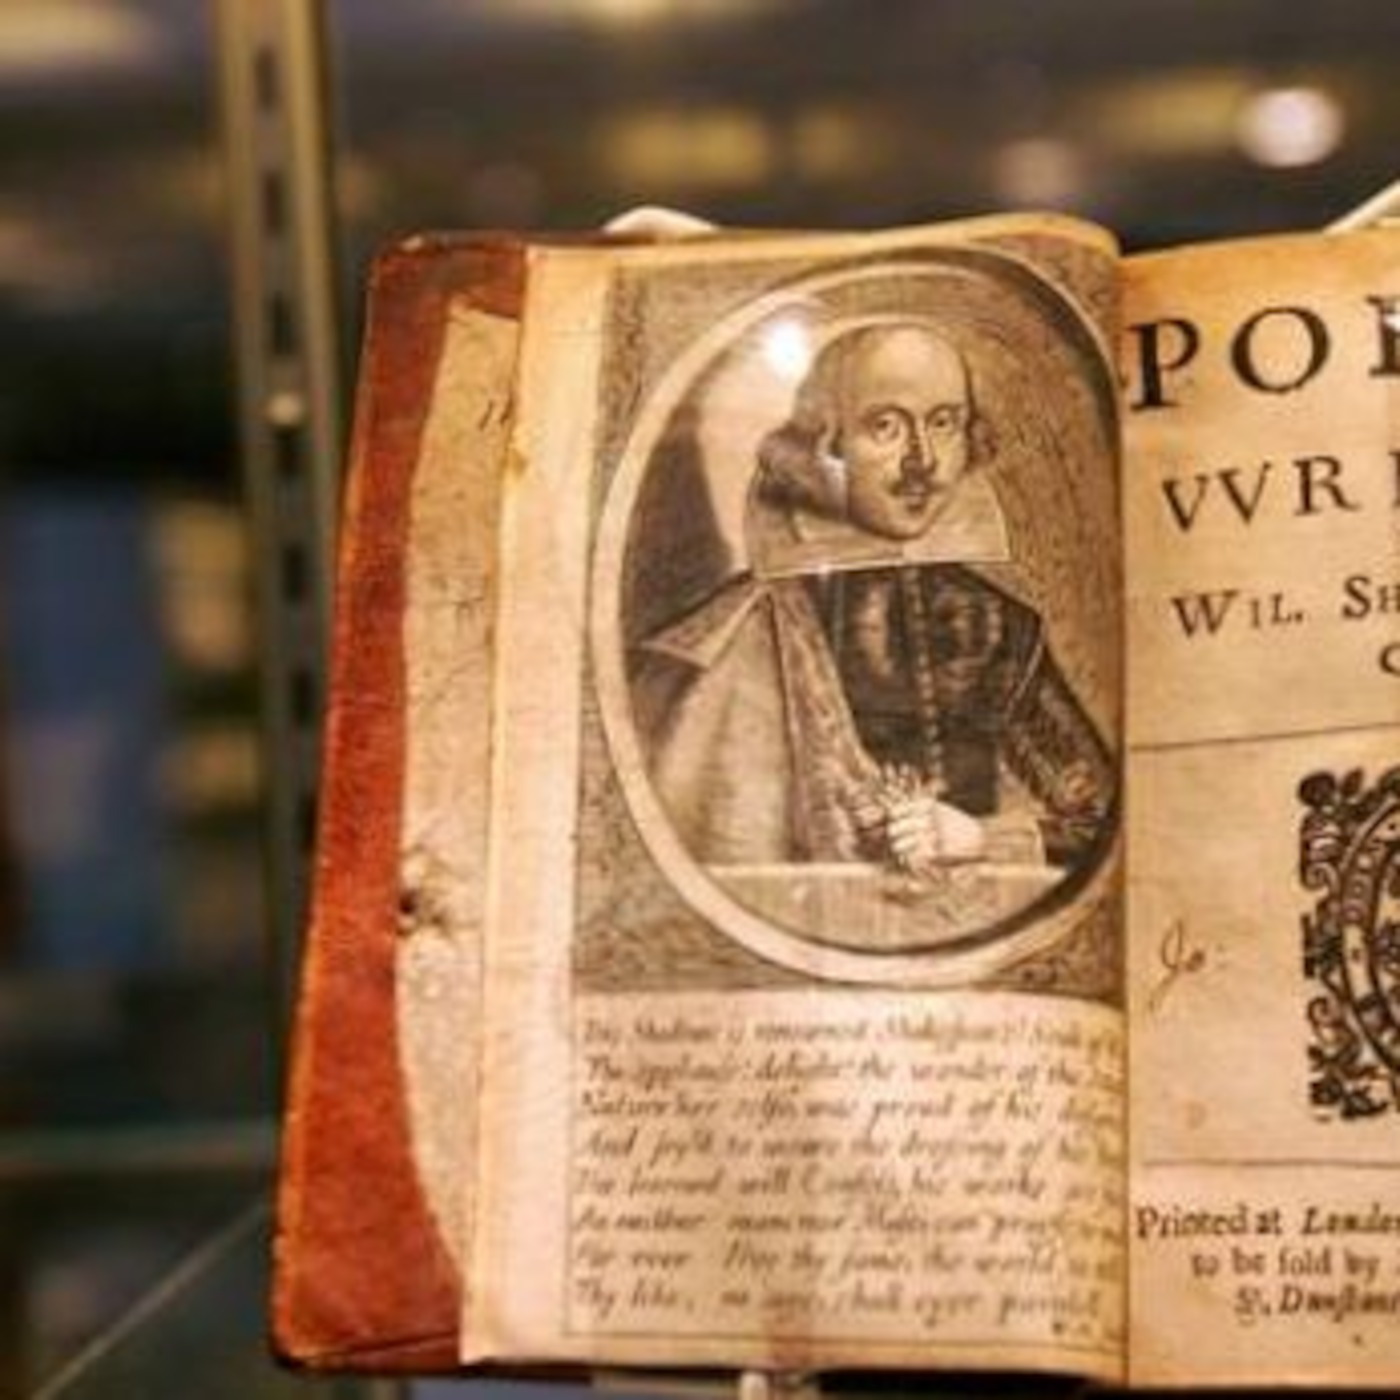 This Shadowe is renowned Shakespear's? Soule of
The applause? delight? the wonder of the
Nature her selfe, was proud of his
And joy'd to weare the dressing of his
The learned will Confess, his works
As neither man, nor Muse, can
For ever live thy fame, the world
Thy like, no age, shall ever paralel
PO
VVR
WIL. SH
Jo:
Printed at Londo
to be sold by
St. Dunstan